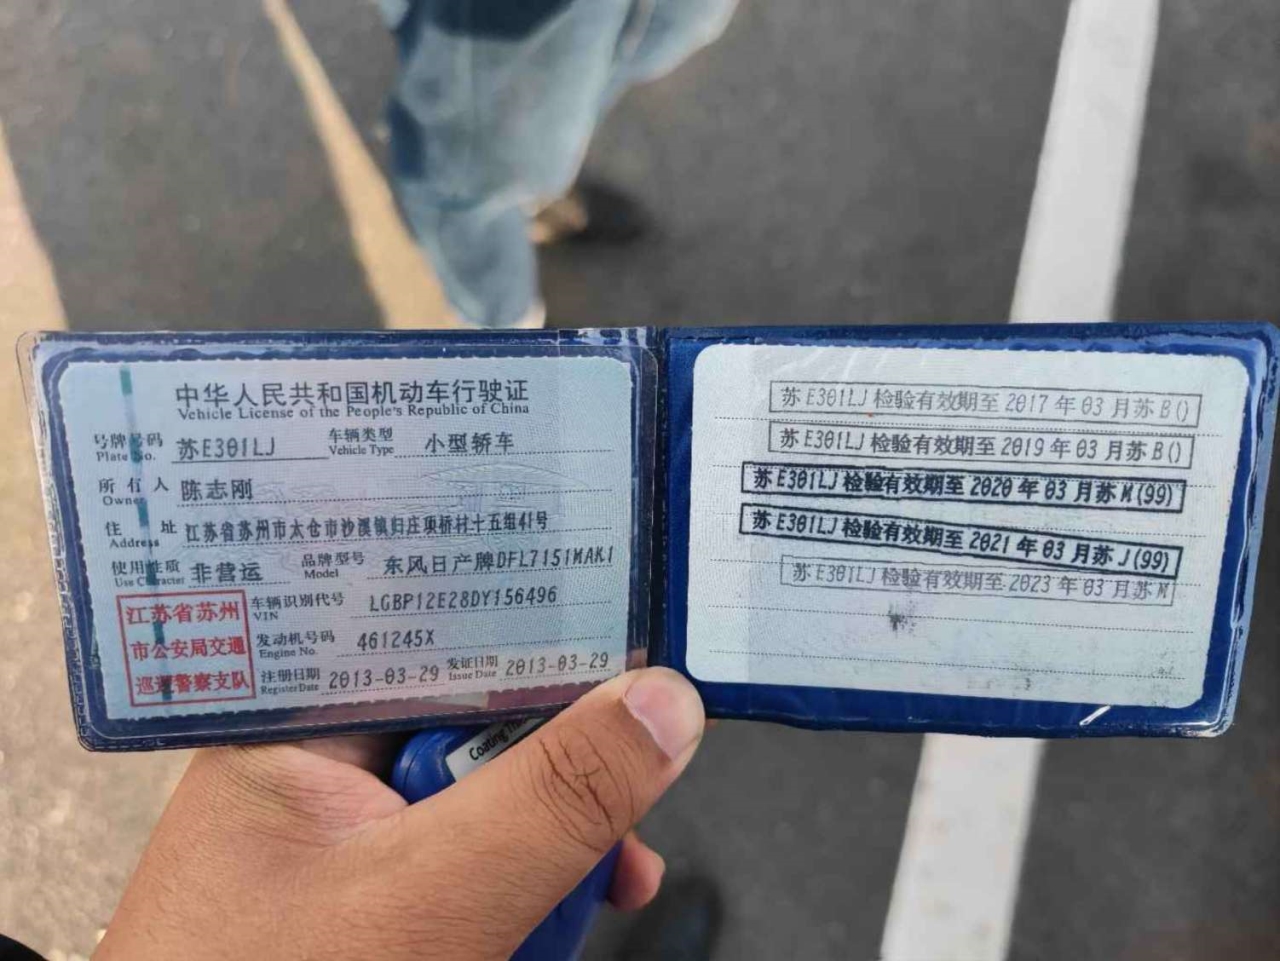 中华人民共和国机动车行驶证
Vehicle License of the People's Republic of China
号牌号码 苏E301LJ 车辆类型 小型轿车
Plate No. Vehicle Type
所有人 陈志刚
Owner
住址 江苏省苏州市太仓市沙溪镇归庄项桥村十五组41号
Address
使用性质 非营运 品牌型号 东风日产牌DFL7151MAK1
Use Character Model
江苏省苏州
市公安局交通
巡逻警察支队
车辆识别代号 LGBP12E28DY156496
VIN
发动机号码 461245X
Engine No.
注册日期 2013-03-29 发证日期 2013-03-29
Register Date Issue Date
苏E301LJ检验有效期至2017年03月苏B()
苏E301LJ检验有效期至2019年03月苏B()
苏E301LJ检验有效期至2020年03月苏M(99)
苏E301LJ检验有效期至2021年03月苏J(99)
苏E301LJ检验有效期至2023年03月苏M
Coating